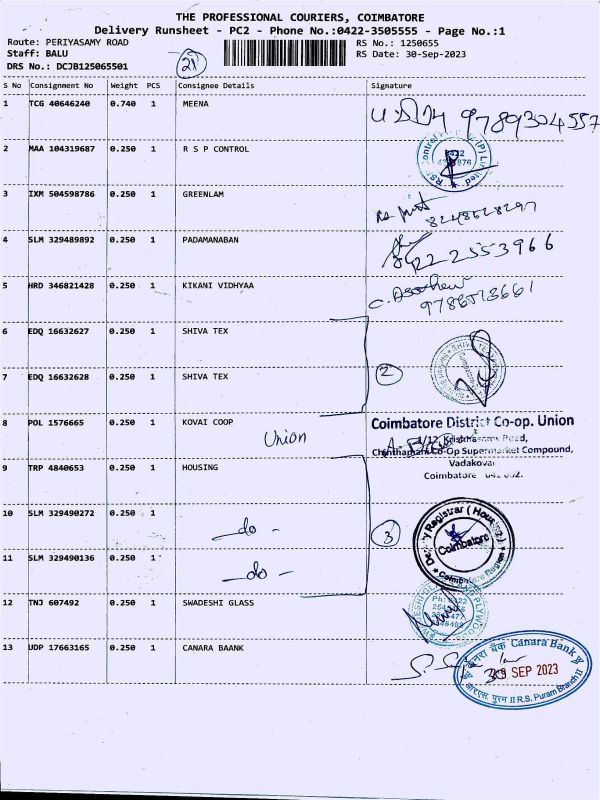 THE PROFESSIONAL COURIERS, COIMBATORE
Delivery Runsheet - PC2 - Phone No.:0422-3505555 - Page No.:1
Route: PERIYASAMY ROAD
Staff: BALU
DRS No.: DCJB125065501
21
RS No.: 1250655
RS Date: 30-Sep-2023
S No Consignment No Weight PCS Consignee Details Signature
1 TCG 40646240 0.740 1 MEENA
9789304557
2 MAA 104319687 0.250 1 R S P CONTROL
3 IXM 504598786 0.250 1 GREENLAM
8248628297
4 SLM 329489892 0.250 1 PADAMANABAN
5 HRD 346821428 0.250 1 KIKANI VIDHYAA
6 EDQ 16632627 0.250 1 SHIVA TEX
7 EDQ 16632628 0.250 1 SHIVA TEX
2
8 POL 1576665 0.250 1 KOVAI COOP
Union
Coimbatore District Co-op. Union
Chinthamani Co-Op Supermarket Compound,
Vadakovai
Coimbatore
9 TRP 4840653 0.250 1 HOUSING
10 SLM 329490272 0.250 1 - do -
3
Deputy Registrar (Housing)
Coimbatore
Coimbatore Region
11 SLM 329490136 0.250 1 - do -
12 TNJ 607492 0.250 1 SWADESHI GLASS
13 UDP 17663165 0.250 1 CANARA BAANK
केनरा बैंक Canara Bank
30 SEP 2023
आर.एस. पुरम II R.S. Puram Branch II